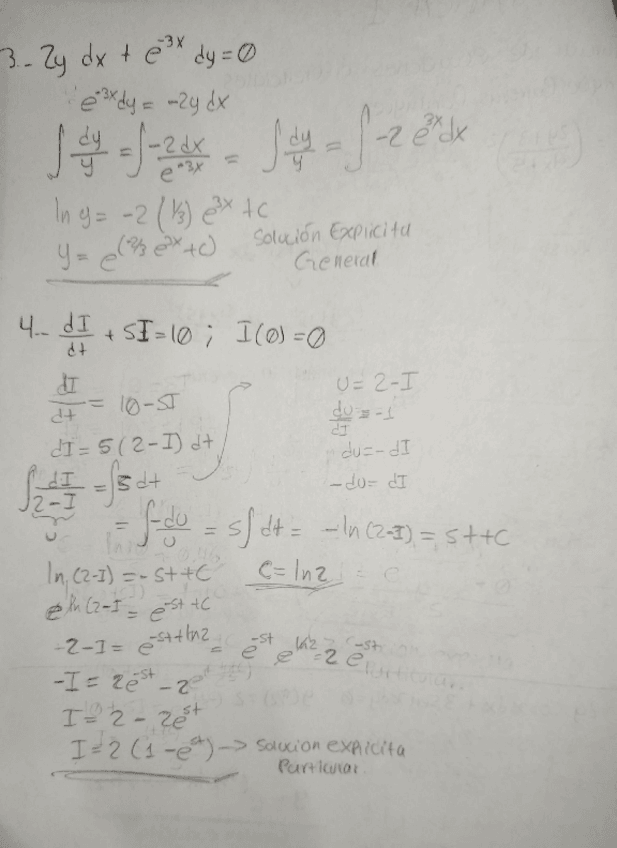 3.- 2y dx + e^-3x dy = 0
e^-3x dy = -2y dx
∫ dy/y = ∫ -2dx/e^-3x = ∫ dy/y = ∫ -2 e^3x dx
ln y = -2 (1/3) e^3x + c
y = e^(-2/3 e^3x + c) Solución Explicita
General
4.- dI/dt + 5I = 10 ; I(0) = 0
dI/dt = 10 - 5I
U = 2 - I
du/dI = -1
dI = 5(2-I) dt
du = -dI
∫ dI/2-I = ∫ 5 dt
-du = dI
u
= ∫ -du/u = 5∫ dt = -ln (2-I) = 5t + C
ln (2-I) = -5t + C C = ln 2
e^ln(2-I = e^-5t + C
-2-I = e^-5t+ln2 = e^-5t e^ln2 = 2 e^-5t
-I = 2e^-5t - 2
I = 2 - 2e^st
I = 2 (1 - e^st) -> Solucion explicita
Particular